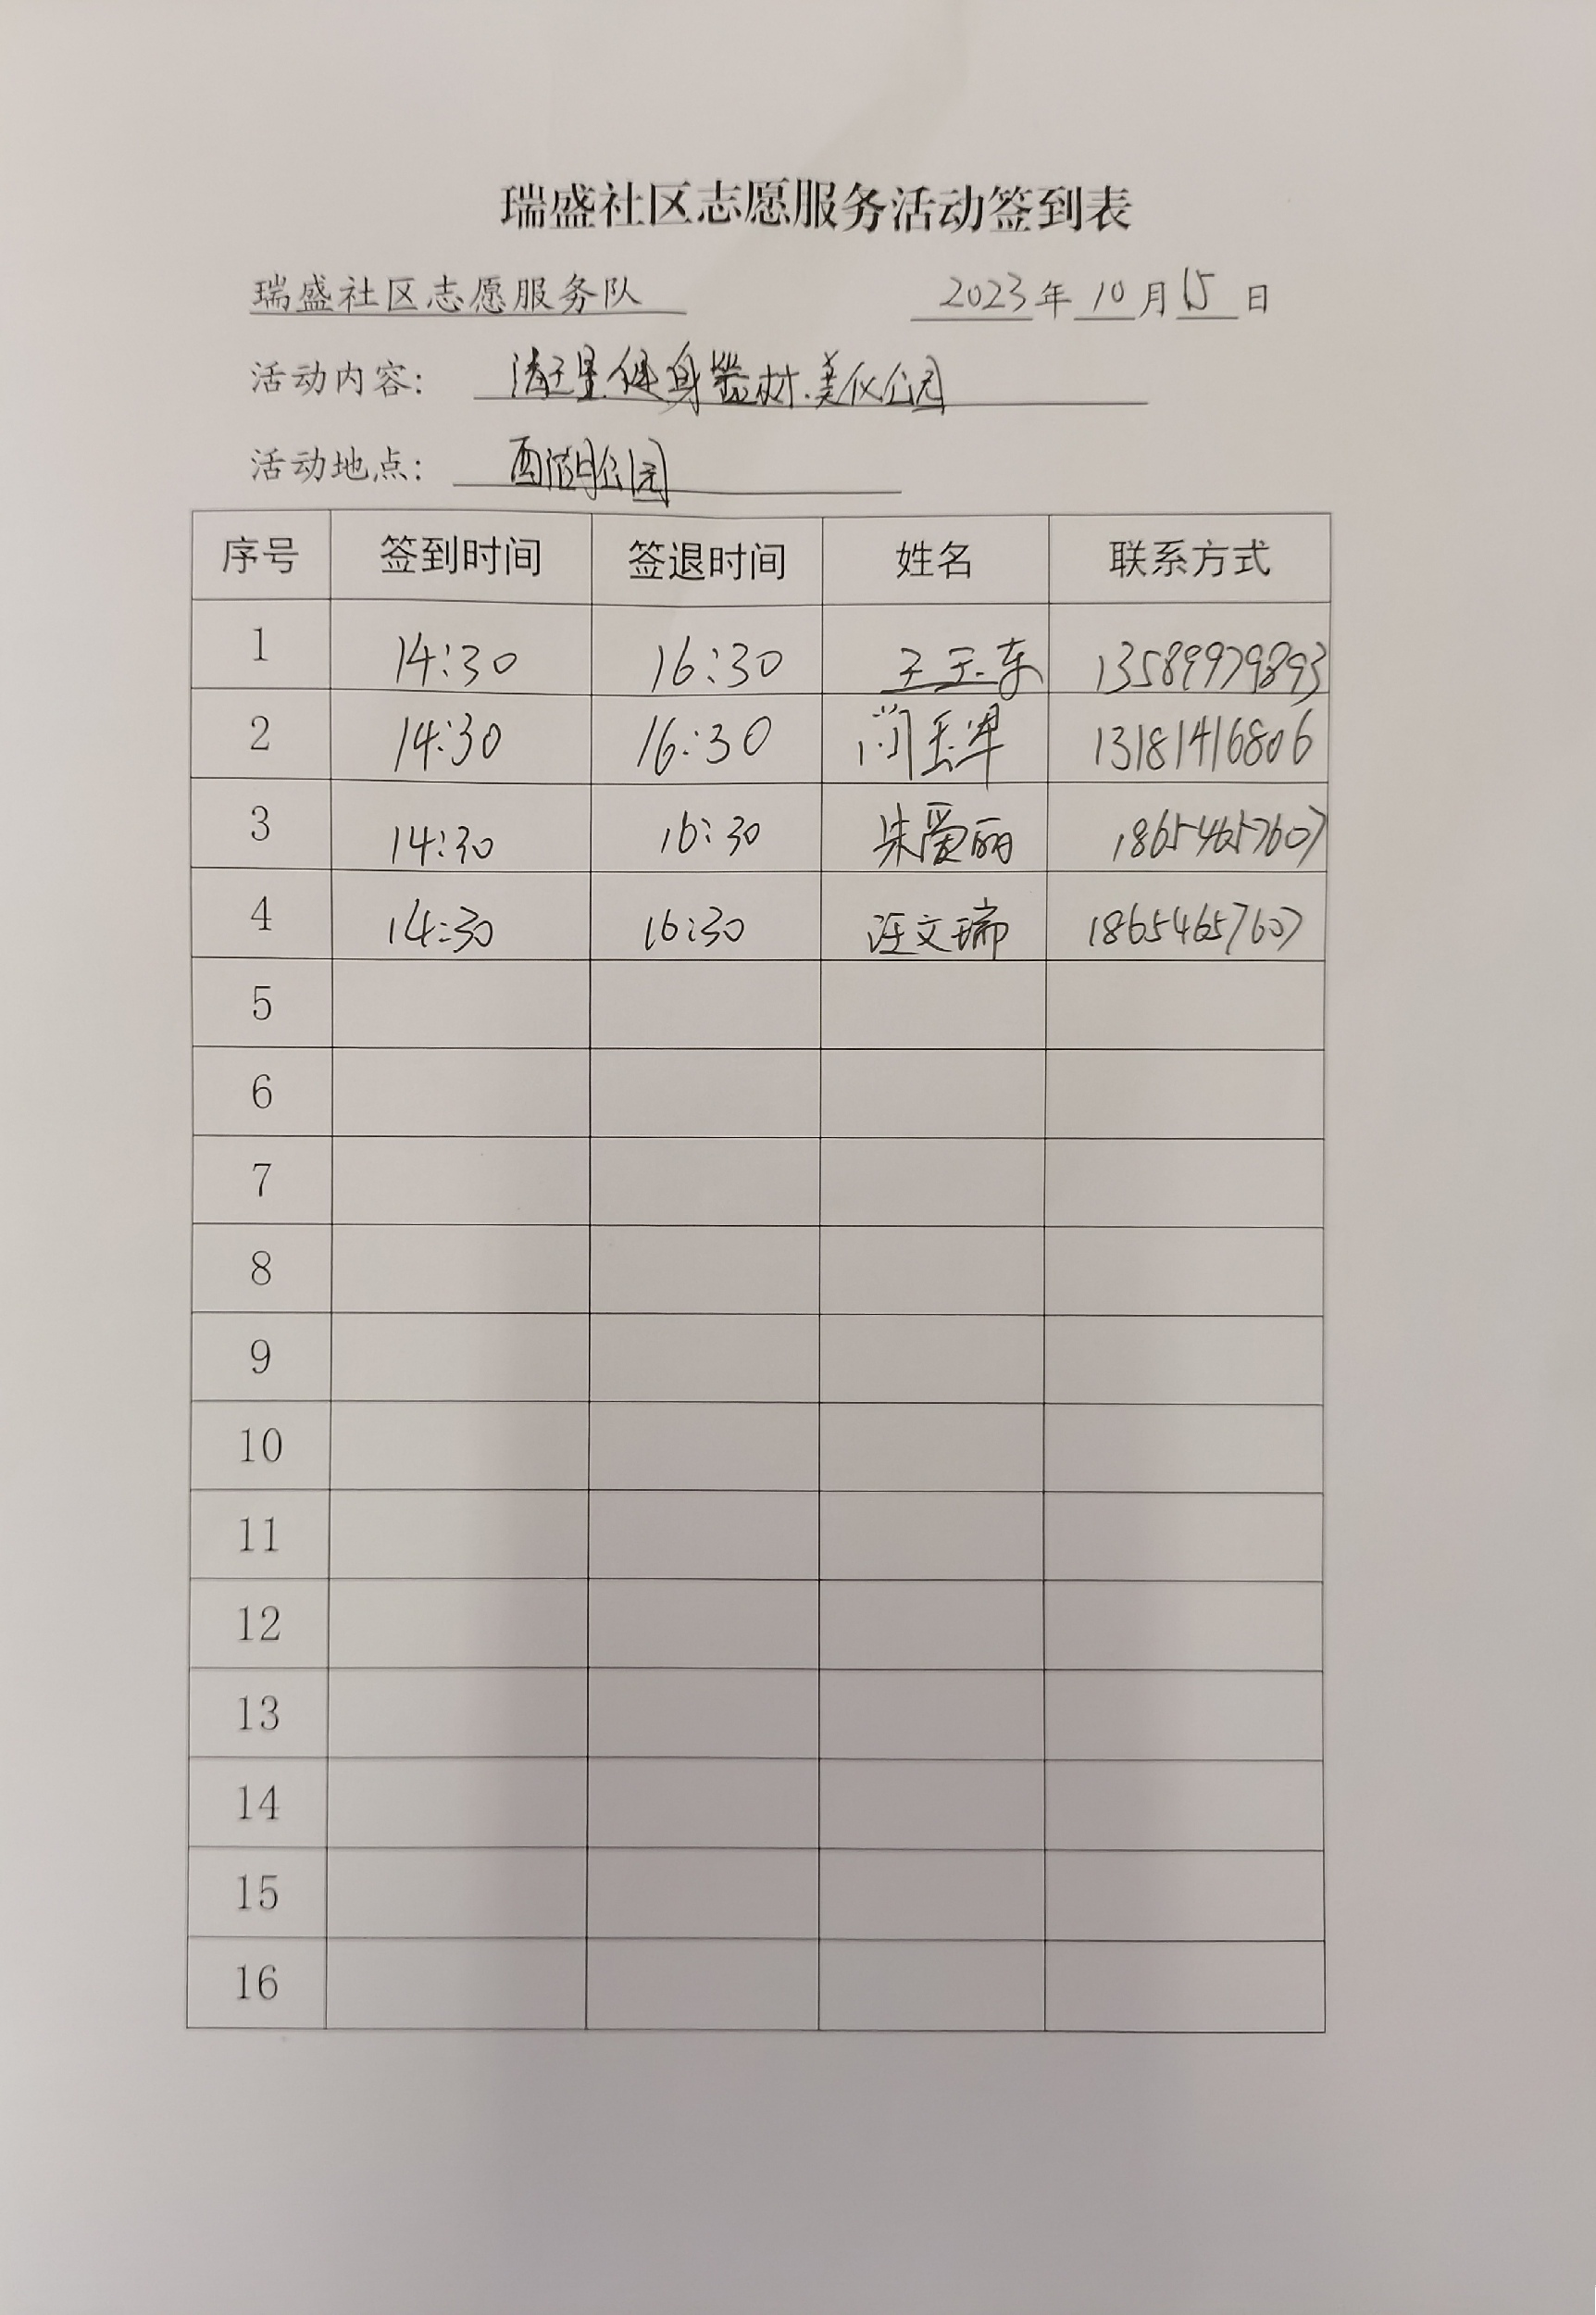 瑞盛社区志愿服务活动签到表
瑞盛社区志愿服务队 2023年 10月 15日
活动内容: 清理健身器材.美化公园
活动地点: 西湖公园
序号 签到时间 签退时间 姓名 联系方式
1 14:30 16:30 王玉东 13589979893
2 14:30 16:30 13181416806
3 14:30 16:30 朱爱丽 18654657607
4 14:30 16:30 汪文瑞 18654657607
5
6
7
8
9
10
11
12
13
14
15
16